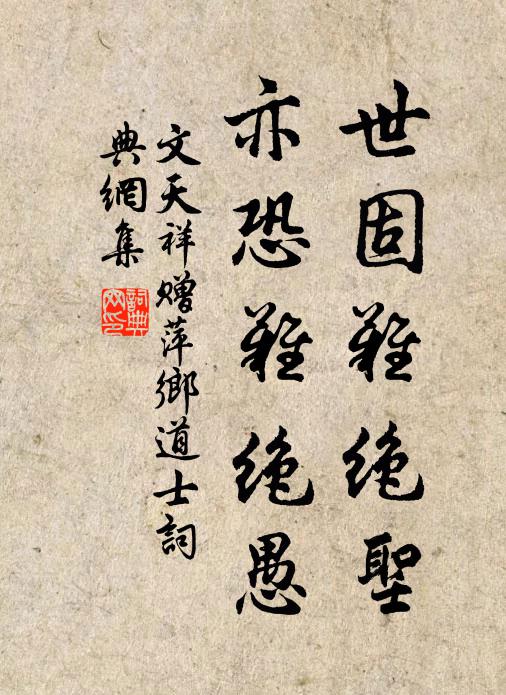 世固難絶聖
亦恐難絶愚
文天祥贈萍鄉道士詞
典網集
詞典網印